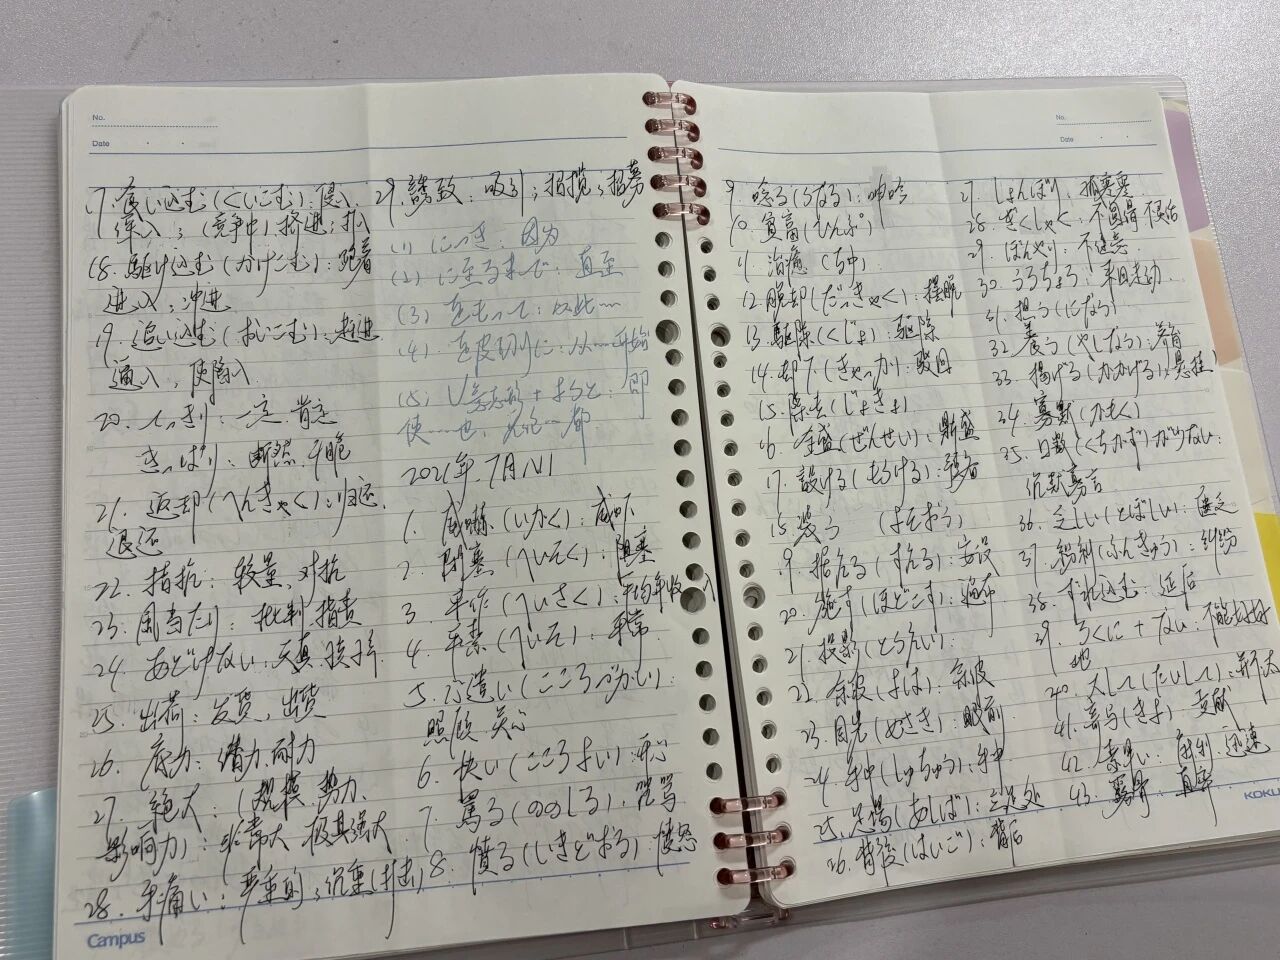 No.
Date
17. 食い込む（くいこむ）：侵入
牵入；（竞争中）挤进；打入
18. 駆け込む（かけこむ）：跑着
进入；冲进
19. 追い込む（おいこむ）：赶进
逼入，使陷入
20. てっきり：一定．肯定
きっぱり：断然．干脆
21. 返却（へんきゃく）：归还．
退还
22. 拮抗：较量、对抗
23. 風当たり：批判 指责
24. あどけない：天真．孩子
25. 出荷：发货，出货
26. 底力：潜力．耐力
27. 絶大：（规模 势力
影响力）：非常大 极其强大
28. 手痛い：严重的；沉重（打击）
29. 誘致：吸引；招揽；招募
(1) につき：因为
(2) に至るまで：直至
(3) をもって：以此……
(4) を皮切りに：从……开始
(5) V意志形＋ようと：即
使……也、无论……都
2021年．7月
1. 威嚇（いかく）：威吓
2. 閉塞（へいそく）：阻塞
3. 平作（へいさく）：平均年收入
4. 平素（へいそ）：平常
5. 心遣い（こころづかい）：
照顾 关心
6. 快い（こころよい）：
7. 罵る（ののしる）：咒骂
8. 憤る（いきどおる）：愤怒
9. 唸る（うなる）：呻吟
10. 貧富（ひんぷ）
11. 治癒（ちゆ）
12. 脱却（だっきゃく）：摆脱
13. 駆除（くじょ）：驱除
14. 却下（きゃっか）：驳回
15. 除去（じょきょ）
16. 全盛（ぜんせい）：鼎盛
17. 設ける（もうける）：
18. 装う（よそおう）
19. 据える（すえる）：安设
20. 施す（ほどこす）：遍布
21. 投影（とうえい）：
22. 余波（よは）：余波
23. 目先（めさき）：眼前
24. 手中（しゅちゅう）：手中
25. 足場（あしば）：立足处
26. 背後（はいご）：背后
No.
27. しょんぼり：孤零零
28. ぎくしゃく：不圆滑 不灵活
29. ぼんやり：不注意
30. うろちょろ：来回走动．
31. 担う（になう）
32. 養う（やしなう）：养育
33. 掲げる（かかげる）：悬挂
34. 寡黙（かもく）
35. 口数（くちかず）が少ない：
沉默寡言
36. 乏しい（とぼしい）：匮乏
37. 紛糾（ふんきゅう）：纠纷
38. ずれ込む：延后
39. ろくに＋ない：不能好好
地
40. 大して（たいして）：并不太
41. 寄与（きよ）：贡献
42. 素早い：敏利 迅速
43. 露骨：直率
Campus
KOKU